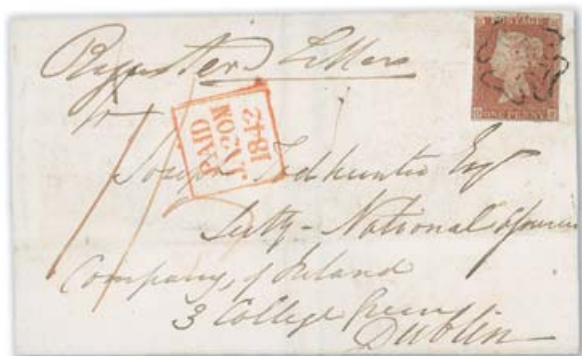 Register Letter
POSTAGE
ONE PENNY
PAID
JA 20 M
1842
Joseph Todhunter Esq
Secty - National Assurance
Company of Ireland
3 College Green
Dublin